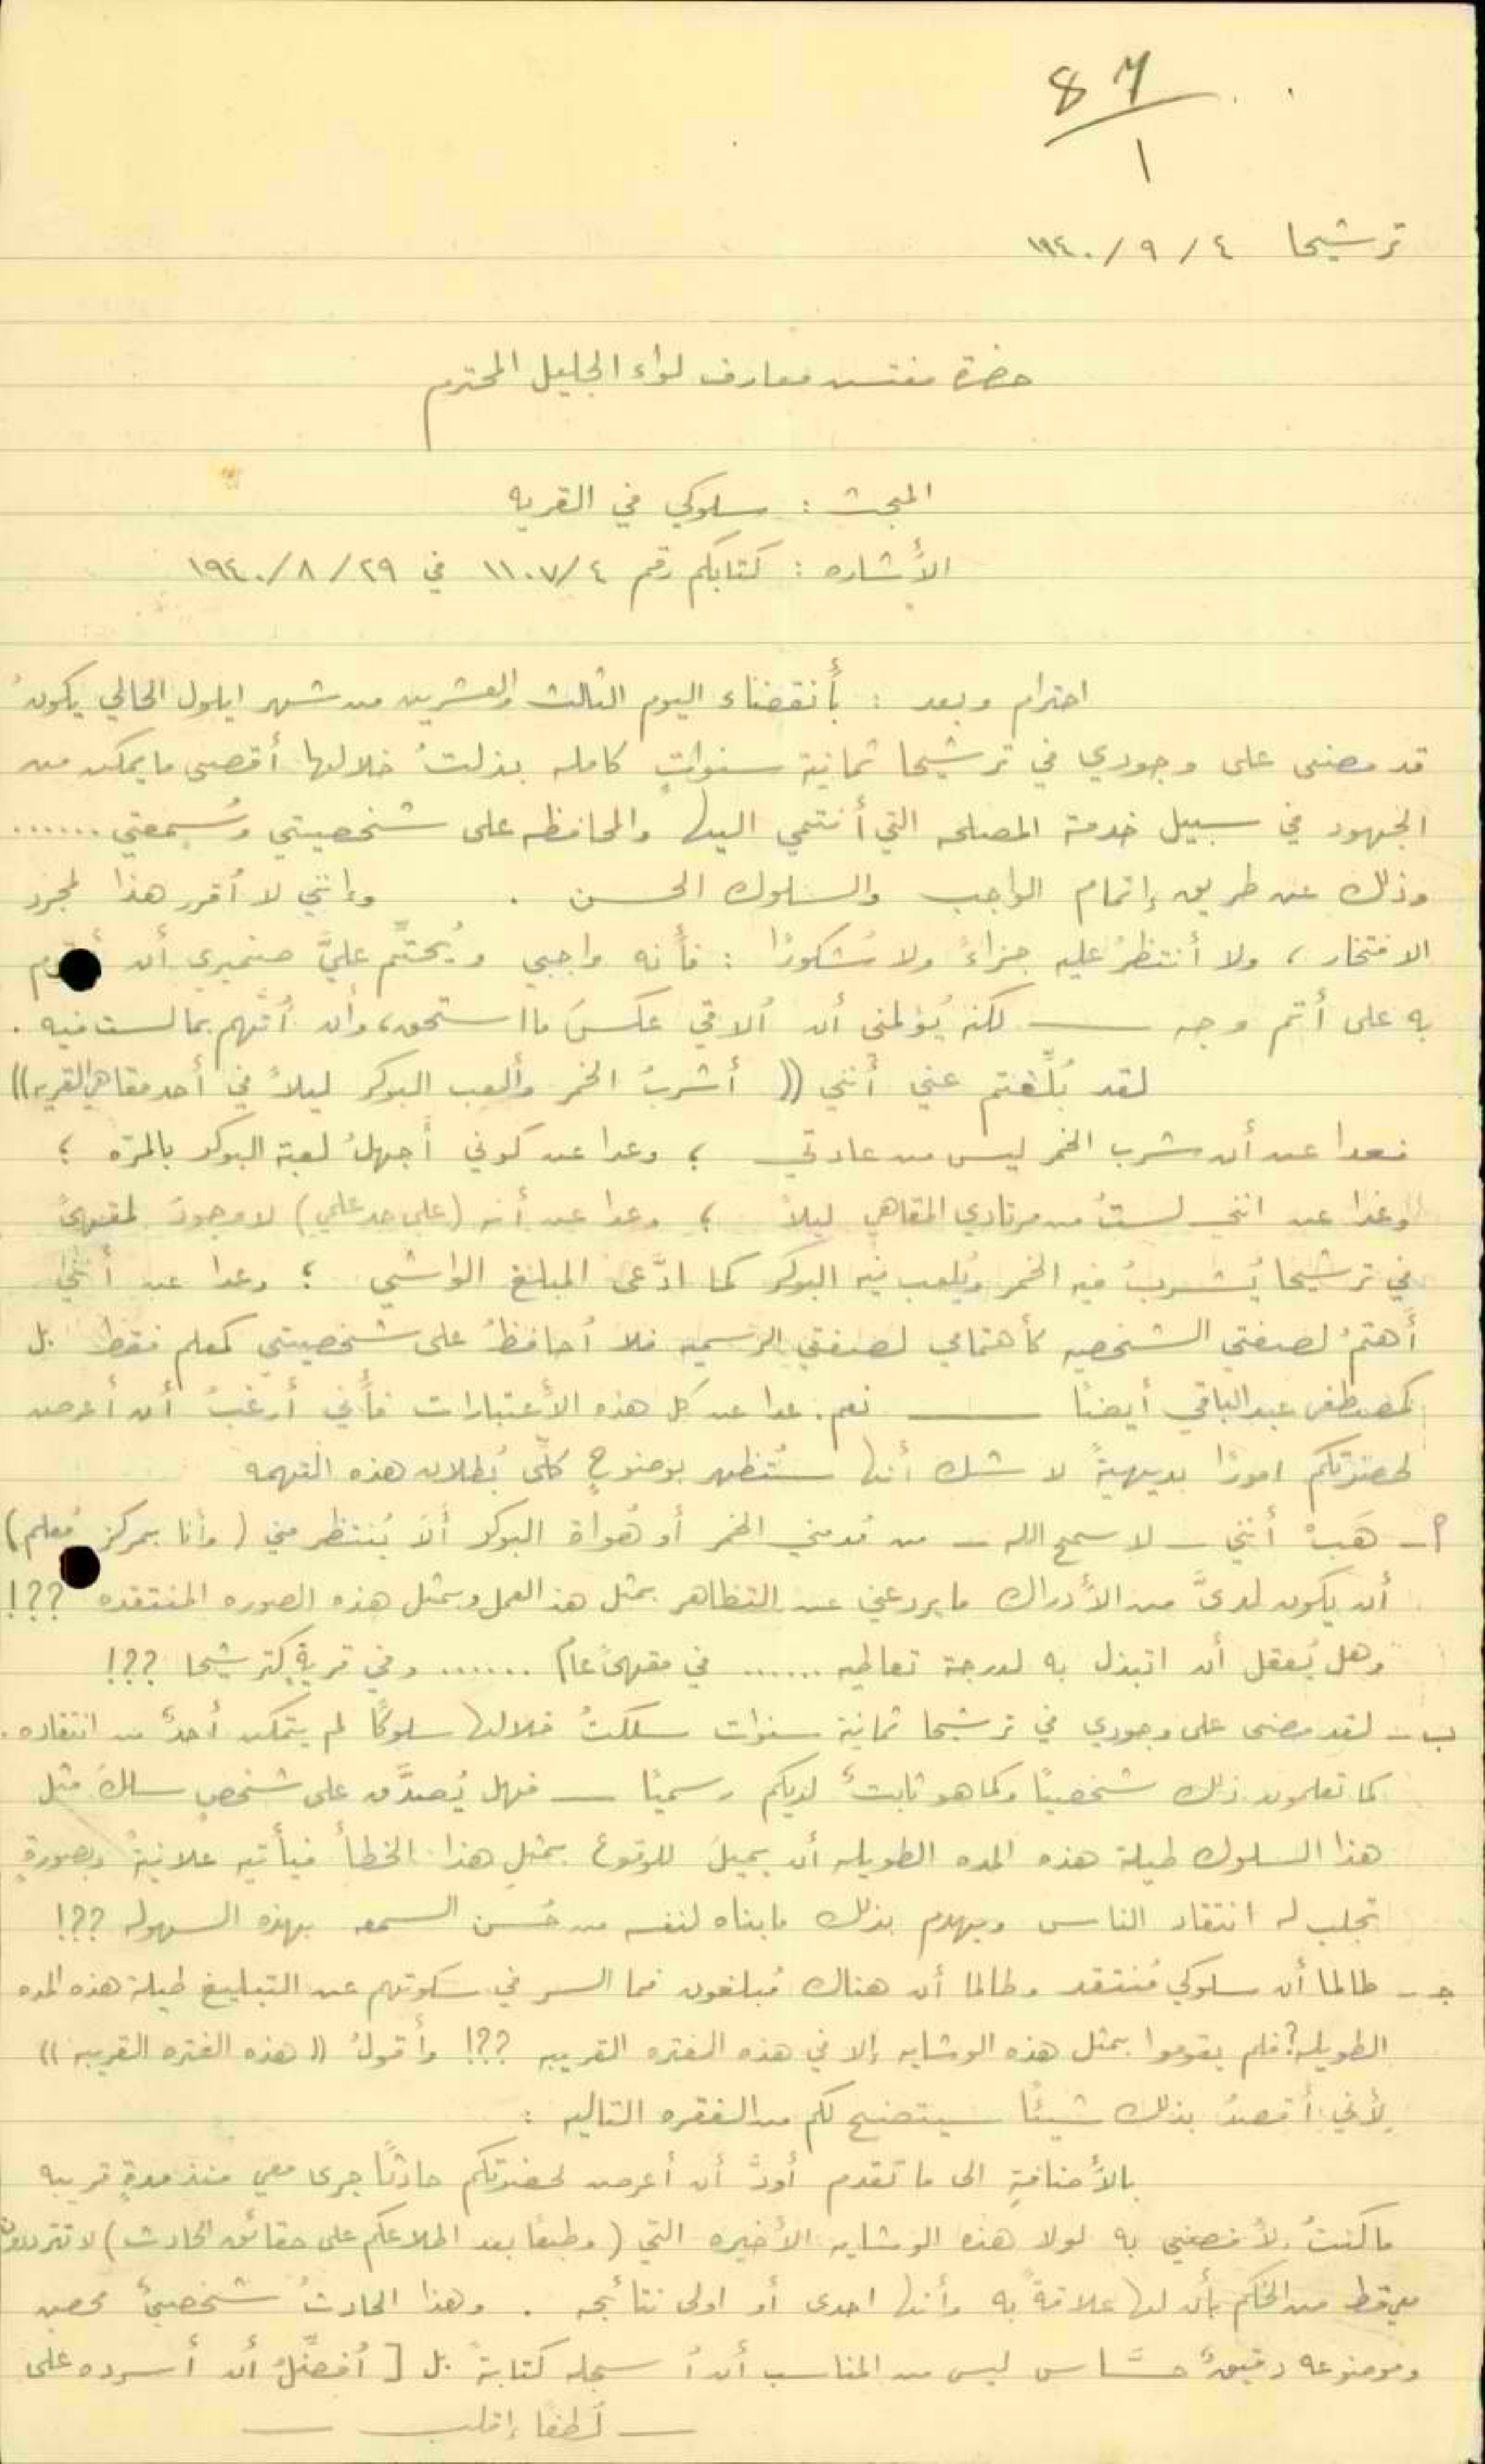 87
١
ترشيحا ٤/ ٩ /١٩٤٠
حضرة مفتش معارف لواء الجليل المحترم
المبحث : سلوكي في القريه
الأشاره : كتابكم رقم ١١٠٧/٤ في ٢٩/ ٨/ ١٩٤٠
احترام وبعد : بأنقضاء اليوم الثالث والعشرين من شهر ايلول الحالي يكون
قد مضى على وجودي في ترشيحا ثمانية سنواتٍ كامله بذلتُ خلالها أقصى ما يمكن من
الجهود في سبيل خدمة المصلحه التي أنتمي اليها والمحافظه على شخصيتي وسُمعتي ......
وذلك عن طريق إتمام الواجب والسلوك الحسن . وإنني لا أقرر هذا لمجرد
الافتخار ، ولا أنتظرُ عليه جزاءً ولا شكورًا : فأنه واجبي ويُحتّم عليَّ ضميري أن أقوم
به على أتم وجه — لكنه يُؤلمني أن ألاقي عكسَ ما استحق، وأن أُتّهم بما لست فيه .
لقد بُلّغتم عني أنني (( أشربُ الخمر وألعب البوكر ليلاً في أحد مقاهي القريه ))
فعدا عن أن شرب الخمر ليس من عادتي ؛ وعدا عن كوني أجهلُ لعبة البوكر بالمرّه ؛
وعدا عن انني لستُ من مرتادي المقاهي ليلاً ؛ وعدا عن أنه (على حد علمي) لا وجودَ لمقهىً
في ترشيحا يُشربُ فيه الخمر ويُلعب فيه البوكر كما ادَّعى المبلغ الواشي ؛ وعدا عن أنني
أهتمُ لصفتي الشخصيه كأهتمامي لصفتي الرسميه فلا أحافظُ على شخصيتي كمعلم فقط بل
كمصطفى عبد الباقي أيضًا — نعم . عدا عن كل هذه الأعتبارات فأني أرغبُ أن أعرض
لحضرتكم امورًا بديهيةً لا شك أنها ستُظهر بوضوحٍ كلّي بُطلان هذه التهمه
أ — هَبْ أنني — لا سمح الله — من مُدمني الخمر أو هُواة البوكر ألا يُنتظر مني (وأنا بمركز مُعلم)
أن يكون لديَّ من الأدراك ما يردعني عن التظاهر بمثل هذا العمل وبمثل هذه الصوره المنتقده ??!
وهل يُعقل أن اتبذل به لدرجة تعاطيه ...... في مقهىً عام ...... وفي قريةٍ كترشيحا ??!
ب — لقد مضى على وجودي في ترشيحا ثمانية سنوات سلكتُ خلالها سلوكًا لم يتمكن أحدٌ من انتقاده .
كما تعلمون ذلك شخصيًا وكما هو ثابتٌ لديكم رسميًا — فهل يُصدَّق على شخصٍ سلك مثل
هذا السلوك طيلة هذه المده الطويله أن يميل للوقوع بمثل هذا الخطأ فيأتيه علانيةً وبصورةٍ
تجلب له انتقاد الناس ويهدم بذلك ما بناه لنفسه من حُسن السمعه بهذه السهوله ??!
جـ — طالما أن سلوكي مُنتقد وطالما أن هناك مُبلغون فما السر في سكوتهم عن التبليغ طيلة هذه المده
الطويله؟ فلم يقوموا بمثل هذه الوشايه إلا في هذه الفتره القريبه ??! وأقولُ (( هذه الفتره القريبه ))
لأني أقصدُ بذلك شيئًا سيتضح لكم من الفقره التاليه :
بالأضافةِ الى ما تقدم أودّ أن أعرض لحضرتكم حادثًا جرى معي منذ مدةٍ قريبه
ما كنتُ لأفضي به لولا هذه الوشايه الأخيره التي (وطبعًا بعد اطلاعكم على حقائق الحادث) لا تترددون
قط من الحكم بأن لها علاقةً به وأنها احدى أو اولى نتائجه . وهذا الحادثُ شخصيٌ محض
وموضوعه دقيقٌ حسَّاس ليس من المناسب أن أسجله كتابةً بل [ أفضّلُ أن أسرده على
— لُطفًا إقلب —